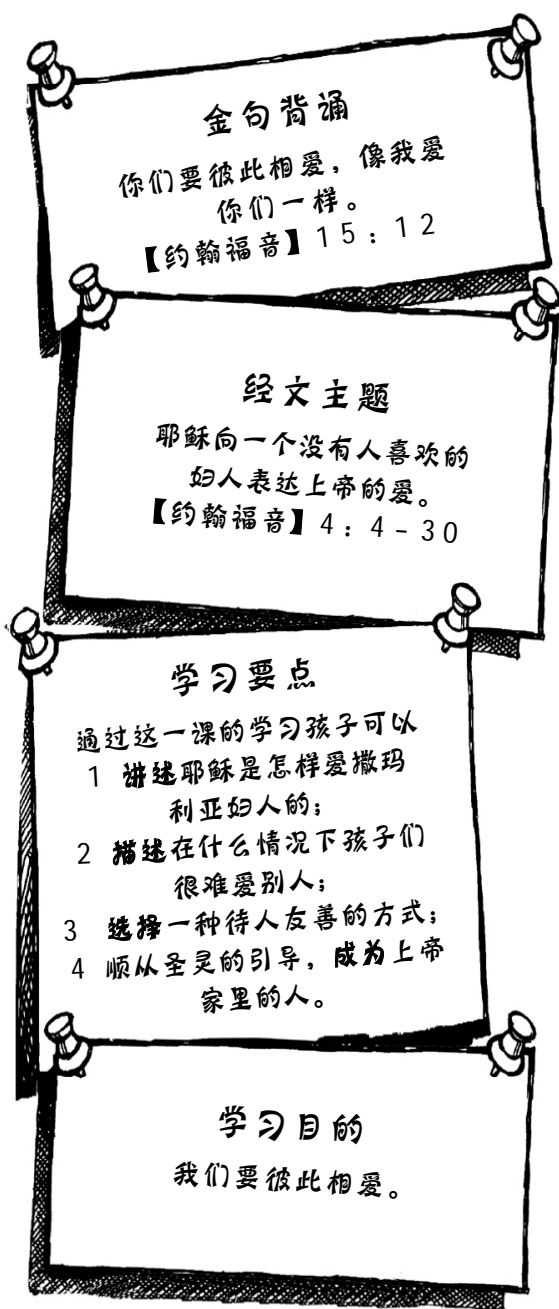 金句背诵
你们要彼此相爱，像我爱
你们一样。
【约翰福音】15：12
经文主题
耶稣向一个没有人喜欢的
妇人表达上帝的爱。
【约翰福音】4：4-30
学习要点
通过这一课的学习孩子可以
1 讲述耶稣是怎样爱撒玛
利亚妇人的；
2 描述在什么情况下孩子们
很难爱别人；
3 选择一种待人友善的方式；
4 顺从圣灵的引导，成为上帝
家里的人。
学习目的
我们要彼此相爱。